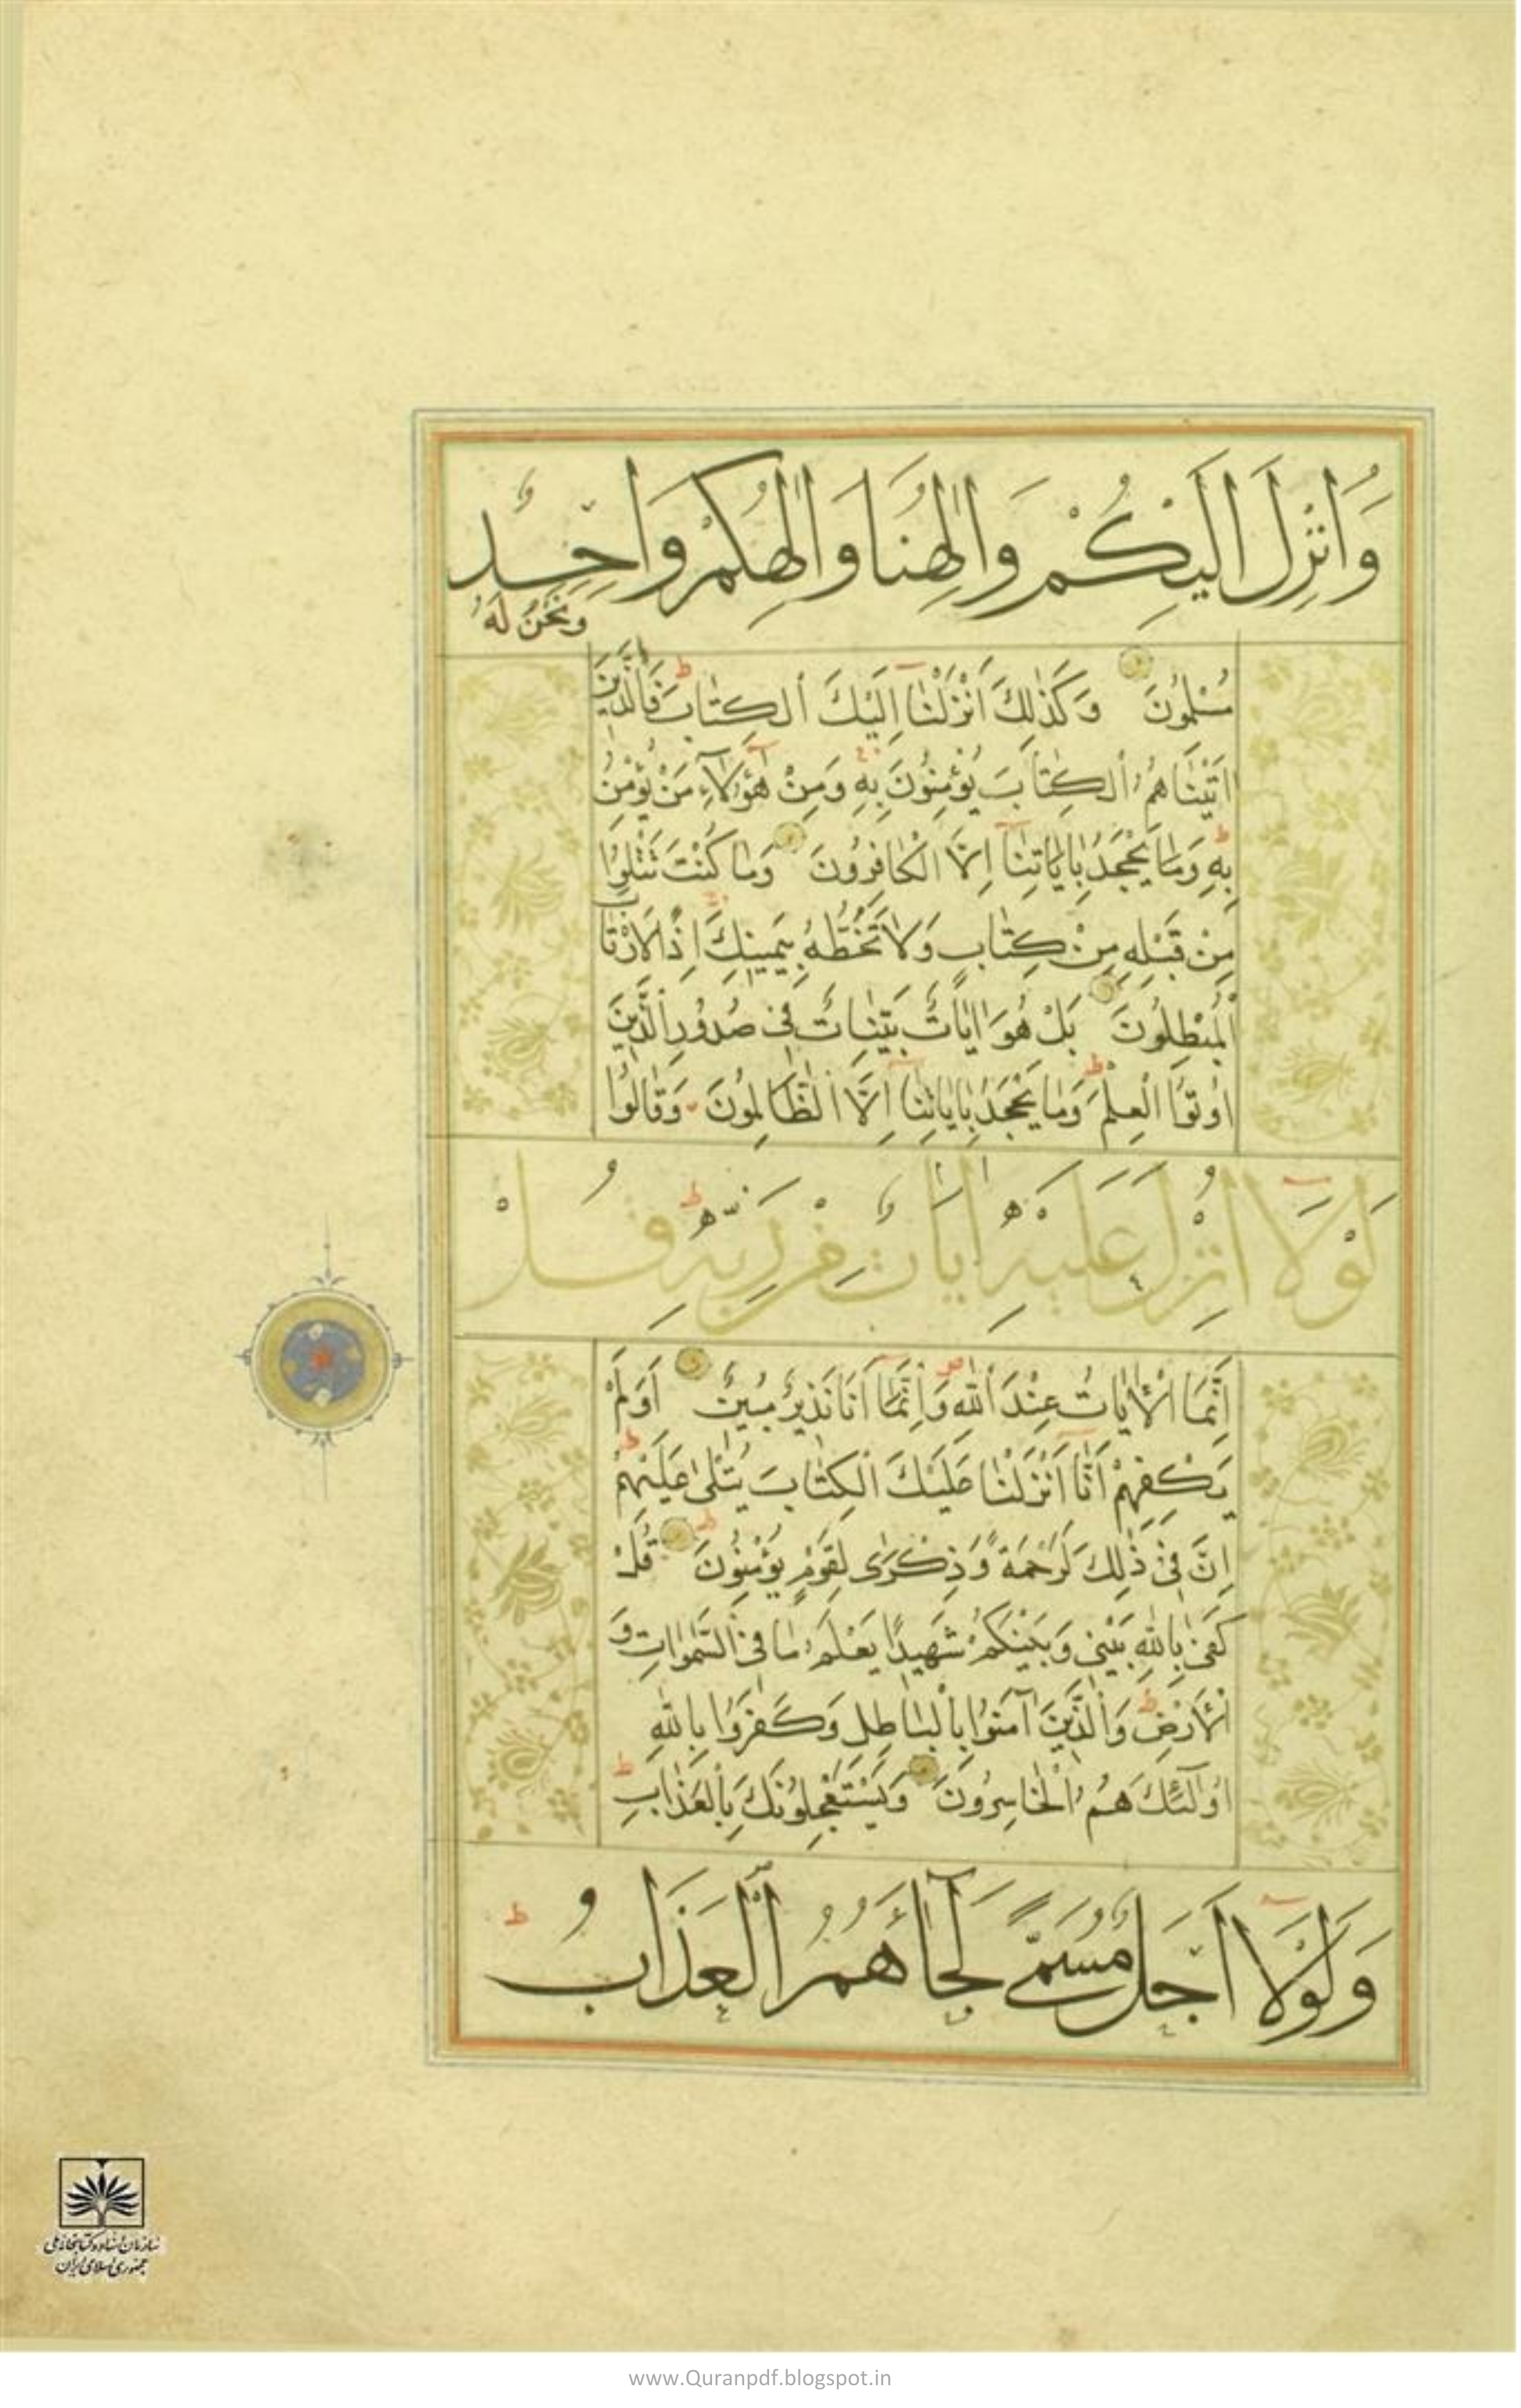 وَاُنْزِلَ اِلَيْكُمْ وَاِلٰهُنَا وَاِلٰهُكُمْ وَاحِدٌ
وَنَحْنُ لَهُ
مُسْلِمُونَ وَكَذٰلِكَ اَنْزَلْنَا اِلَيْكَ الْكِتَابَ فَالَّذِينَ
اٰتَيْنَاهُمُ الْكِتَابَ يُؤْمِنُونَ بِهِ وَمِنْ هٰؤُلَاءِ مَنْ يُؤْمِنُ
بِهِ وَمَا يَجْحَدُ بِاٰيَاتِنَا اِلَّا الْكَافِرُونَ وَمَا كُنْتَ تَتْلُوا
مِنْ قَبْلِهِ مِنْ كِتَابٍ وَلَا تَخُطُّهُ بِيَمِينِكَ اِذًا لَارْتَابَ
الْمُبْطِلُونَ بَلْ هُوَ اٰيَاتٌ بَيِّنَاتٌ فِي صُدُورِ الَّذِينَ
اُوتُوا الْعِلْمَ وَمَا يَجْحَدُ بِاٰيَاتِنَا اِلَّا الظَّالِمُونَ وَقَالُوا
لَوْلَا اُنْزِلَ عَلَيْهِ اٰيَاتٌ مِنْ رَبِّهِ قُلْ
اِنَّمَا الْاٰيَاتُ عِنْدَ اللّٰهِ وَاِنَّمَا اَنَا نَذِيرٌ مُبِينٌ اَوَلَمْ
يَكْفِهِمْ اَنَّا اَنْزَلْنَا عَلَيْكَ الْكِتَابَ يُتْلٰى عَلَيْهِمْ
اِنَّ فِي ذٰلِكَ لَرَحْمَةً وَذِكْرٰى لِقَوْمٍ يُؤْمِنُونَ قُلْ
كَفٰى بِاللّٰهِ بَيْنِي وَبَيْنَكُمْ شَهِيدًا يَعْلَمُ مَا فِي السَّمٰوَاتِ وَ
الْاَرْضِ وَالَّذِينَ اٰمَنُوا بِالْبَاطِلِ وَكَفَرُوا بِاللّٰهِ
اُولٰئِكَ هُمُ الْخَاسِرُونَ وَيَسْتَعْجِلُونَكَ بِالْعَذَابِ
وَلَوْلَا اَجَلٌ مُسَمًّى لَجَاءَهُمُ الْعَذَابُ
سازمان اسناد و کتابخانه ملی
جمهوری اسلامی ایران
www.Quranpdf.blogspot.in